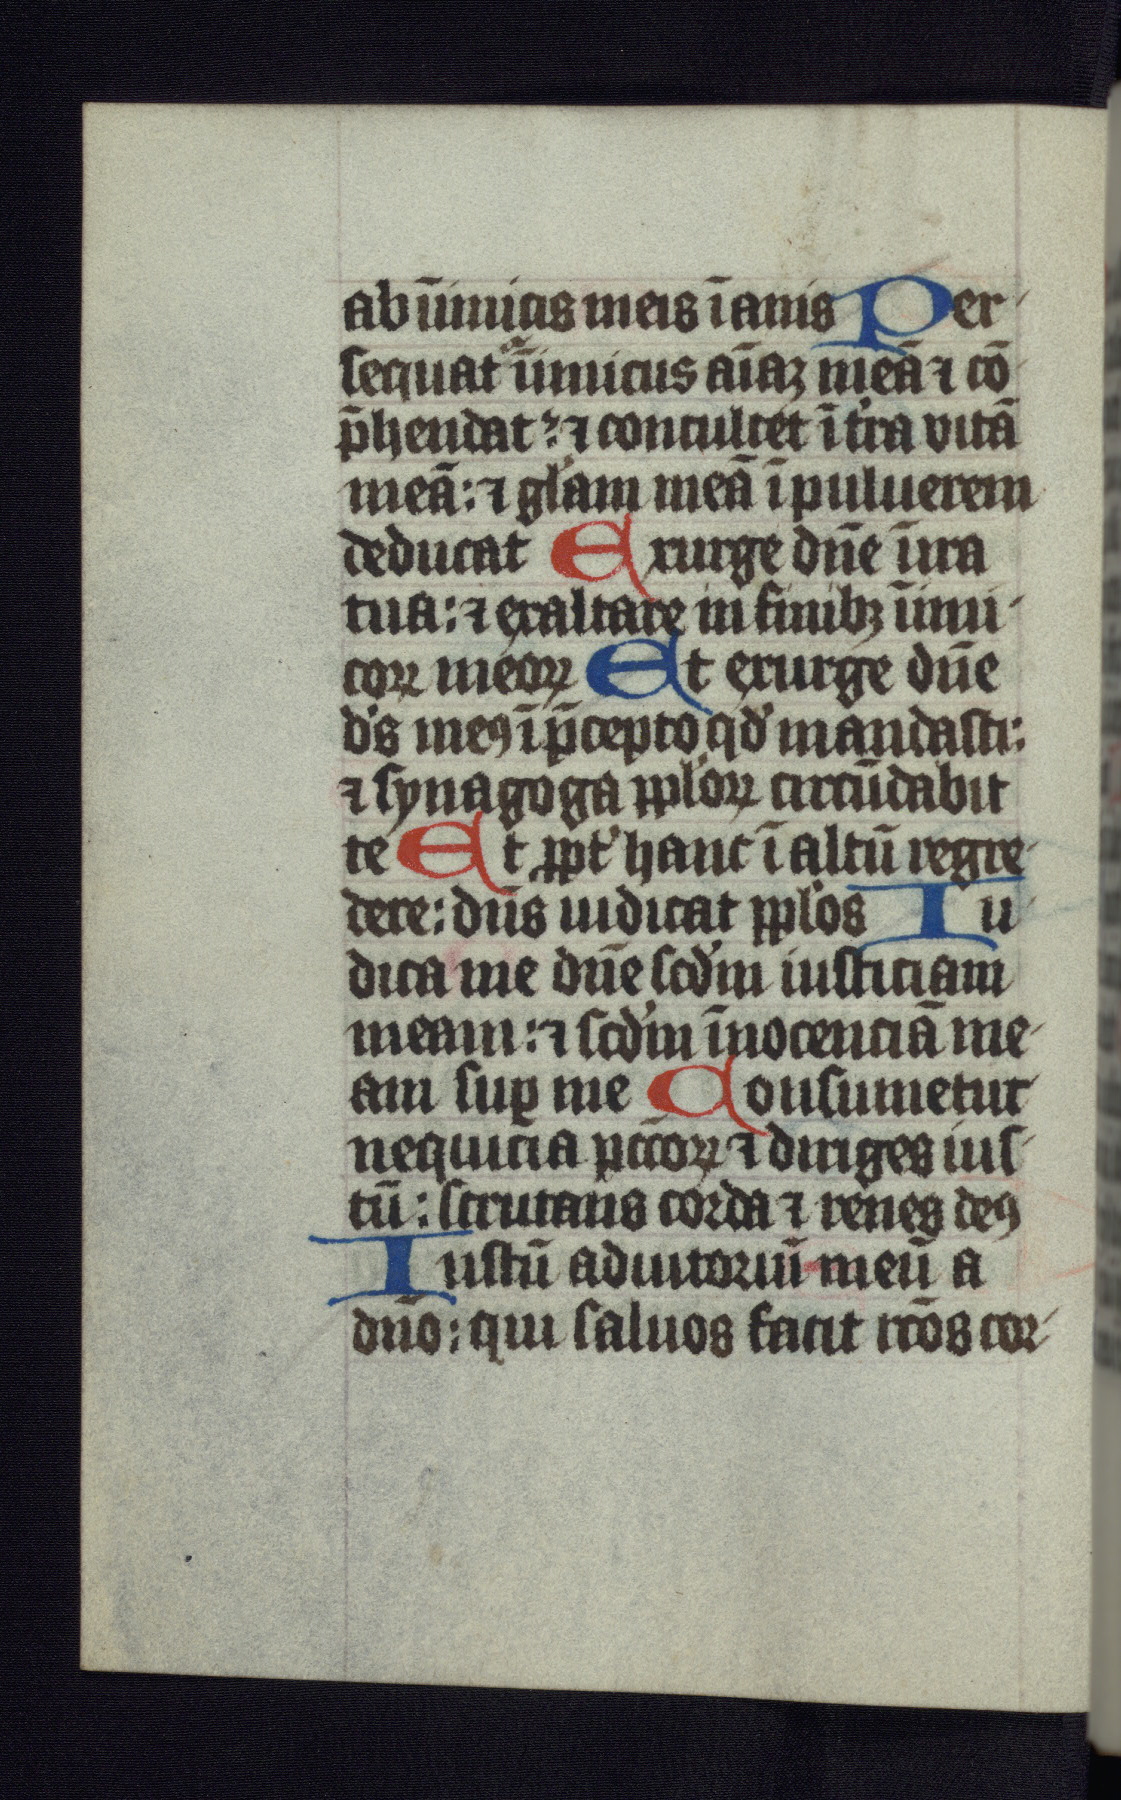 ab īimicis meis ianis Per-
sequat᷑ īimicus aīaꝫ meā ⁊ cō-
p̄hendat: ⁊ conculcet ī tr̄a vitā
meā: ⁊ gl'am meā ī puluerem
deducat Exurge dn̄e ī ira
tua: ⁊ exaltare in finibꝫ īimi-
coꝝ meoꝝ Et exurge dn̄e
d's meꝰ ī p̄cepto qd' mandasti:
⁊ synagoga ppl'oꝝ circūdabit
te Et ppt' hanc ī altū regre-
dere: dn̄s iudicat ppl'os Iu-
dica me dn̄e scd'm iusticiam
meam: ⁊ scd'm īnocenciā me-
am suꝑ me Consumetur
nequicia pcc̄oꝝ ⁊ diriges ius-
tū: scrutans corda ⁊ renes deꝰ
Iustū adiutoriū meū a
dn̄o: qui saluos facit rc̄os cor-